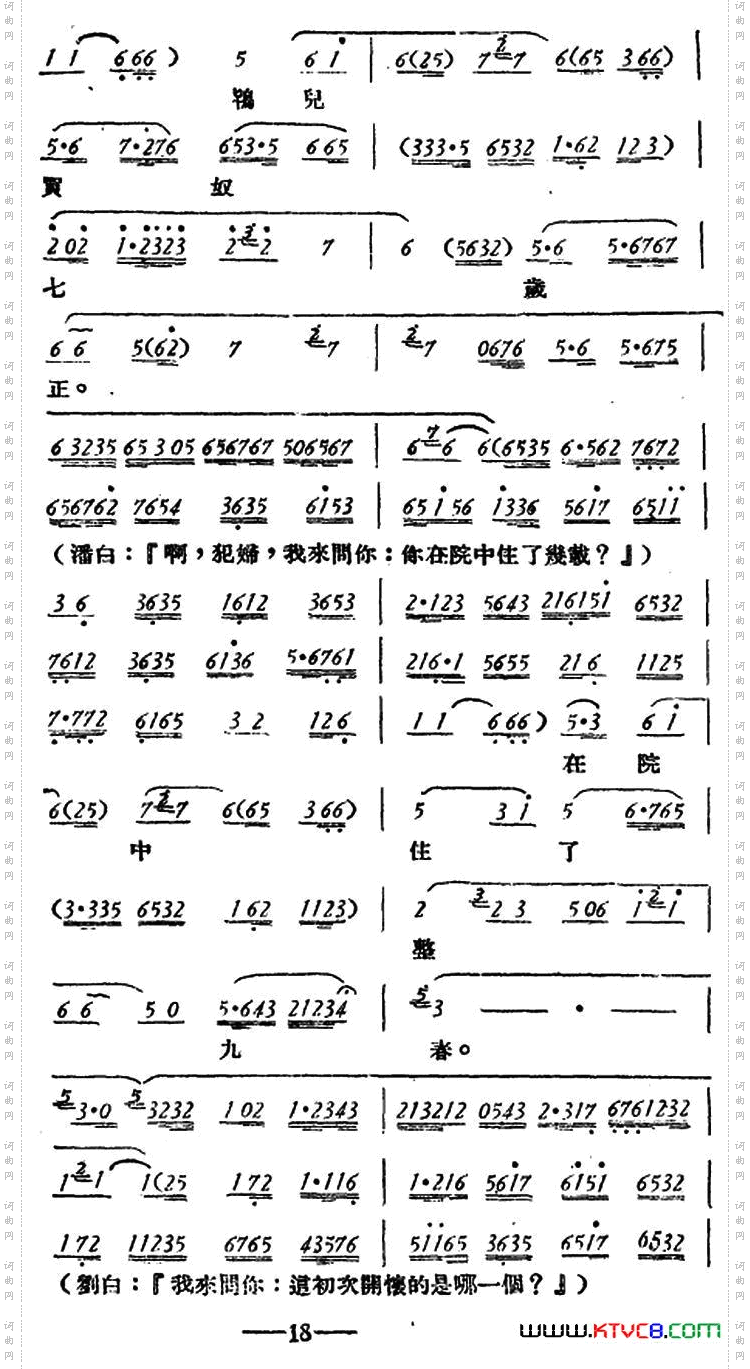 1 i 6 6 6 ) 5 6 i | 6(25) 7 2 7 6(65 366) |
鴇 兒
5·6 7·276 653·5 665 | (333·5 6532 1·62 123) |
買 奴
202 1·2323 2 3 2 7 | 6 (5632) 5·6 5·6767 |
七 歲
6 6 5(62) 7 2 7 | 2 7 0676 5·6 5·675 |
正。
63235 65305 656767 506567 | 6 7 6 6(6535 6·562 7672 |
656762 7654 3635 6153 | 65156 1336 5617 6511 |
(潘白:『啊,犯婦,我來問你:你在院中住了幾載?』)
36 3635 1612 3653 | 2·123 5643 216151 6532 |
7612 3635 6136 5·6761 | 216·1 5655 216 1125 |
7·772 6165 32 126 | 11 666) 5·3 6 i |
在 院
6(25) 7 2 7 6(65 366) | 5 3 i 5 6·765 |
中 住 了
(3·335 6532 162 1123) | 2 3 2 3 506 i 2 i |
整
6 6 5 0 5·643 21234 | 5 3 — · — |
九 春。
5 3·0 5 3232 102 1·2343 | 213212 0543 2·317 6761232 |
1 2 1 1(25 172 1·116 | 1·216 5617 6151 6532 |
172 11235 6765 43576 | 51165 3635 6517 6532 |
(劉白:『我來問你:這初次開懷的是哪一個?』)
—18—
WWW.KTVC8.COM
词曲网